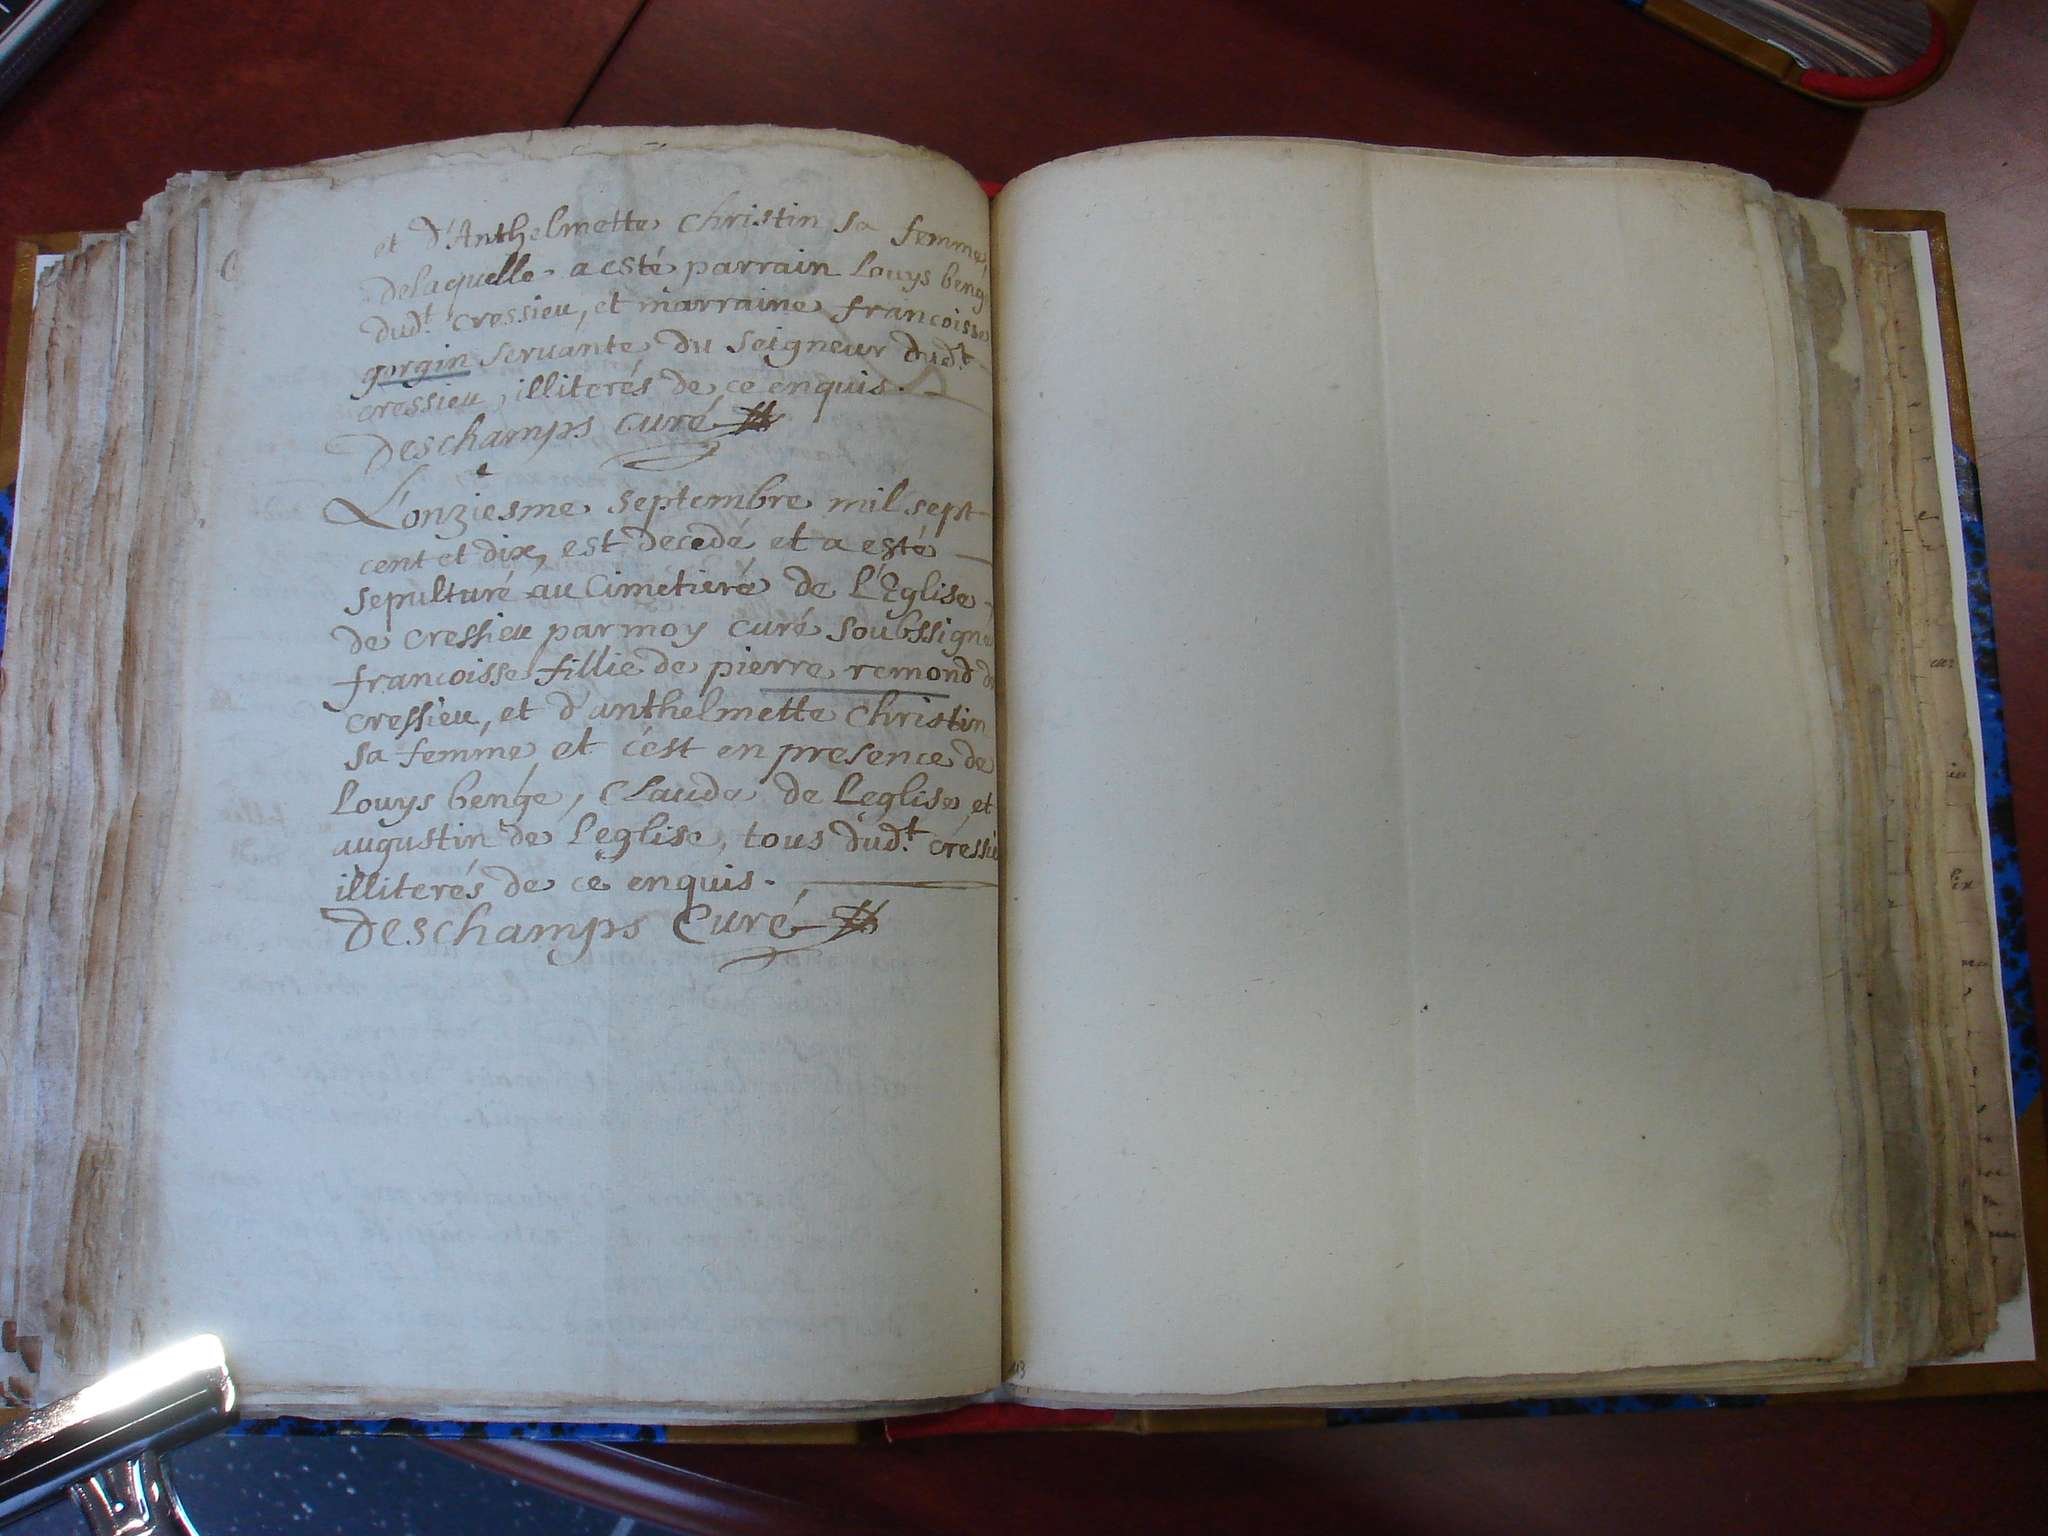 et d'Anthelmette Christin sa femme,
delaquelle a esté parrain Louys beng
dud.t cressieu, et marraine francoisse
gorgin servante du seigneur dud.t
cressieu, illiterés de ce enquis.
Deschamps curé
L'onziesme septembre mil sept
cent et dix, est decedé et a esté
sepulturé au Cimetiere de L'Eglise
de cressieu par moy curé soubssigné
francoisse fillie de pierre remond d
cressieu, et d'anthelmette Christin
sa femme et c'est en presence de
Louys benge, Claude de Leglise, et
augustin de Leglise, tous dud.t cressie
illiterés de ce enquis.
Deschamps Curé